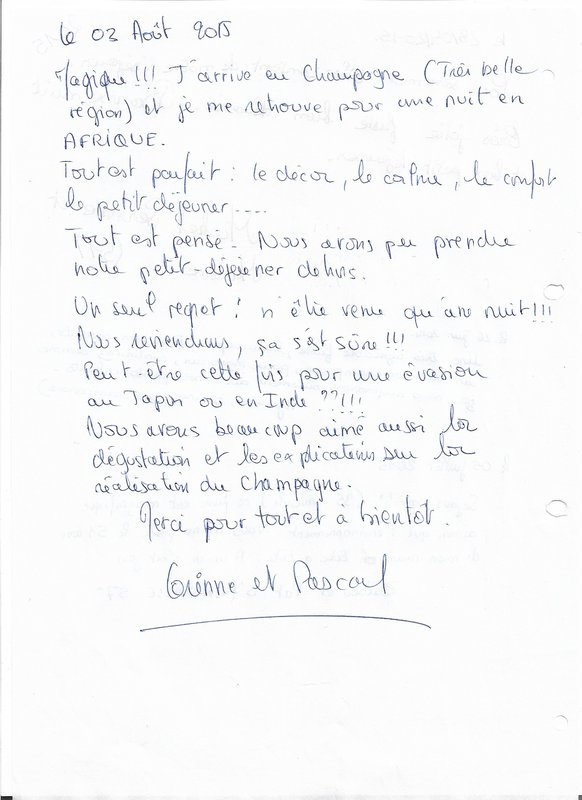 le 02 Août 2015
Magique !!! J'arrive en Champagne (Très belle
région) et je me retrouve pour une nuit en
AFRIQUE.
Tout est parfait : le décor, le calme, le confort
le petit déjeuner ....
Tout est pensé. Nous avons pu prendre
notre petit-déjeuner dehors.
Un seul regret ! n'être venue qu'une nuit !!!
Nous reviendrons, ça s'est sûre !!!
Peut-être cette fois pour une évasion
au Japon ou en Inde ??!!!
Nous avons beaucoup aimé aussi la
dégustation et les explications sur la
réalisation du Champagne.
Merci pour tout et à bientôt.
et Pascal